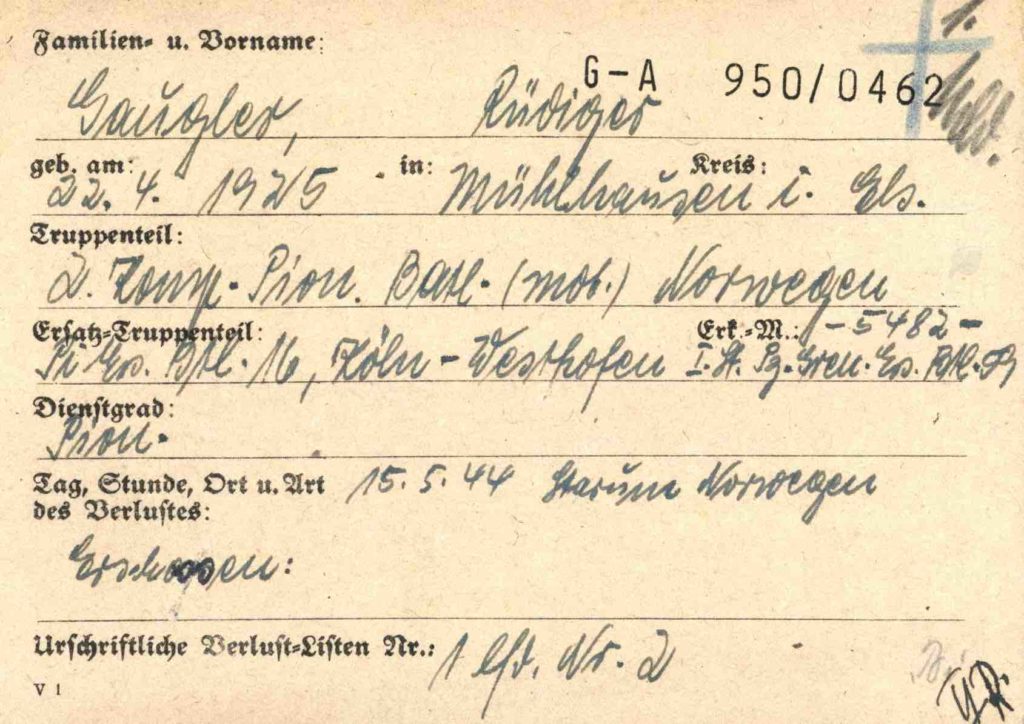 Familien- u. Vorname:
G-A 950/0462
Gaugler, Rüdiger
geb. am: in: Kreis:
22. 4. 1925 Mühlhausen i. Els.
Truppenteil:
2. Komp. Pion. Batl. (mob.) Norwegen
Ersatz-Truppenteil: Erk.-M.: -5482-
Pi Ers. Btl. 16, Köln-Westhofen I. St. Pz. Gren. Ers. Btl.
Dienstgrad:
Pion.
Tag, Stunde, Ort u. Art 15. 5. 44 Starum Norwegen
des Verlustes:
Erschossen:
Urschriftliche Verlust-Listen Nr.: 1 lfd. Nr. 2
V 1